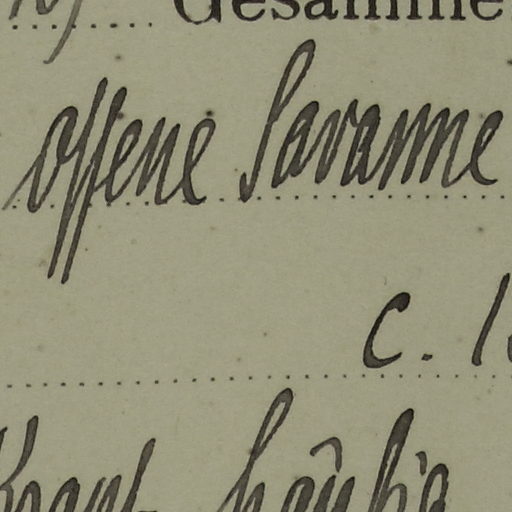 Gesamme
offene Savanne
c. 1
Kraut häufig